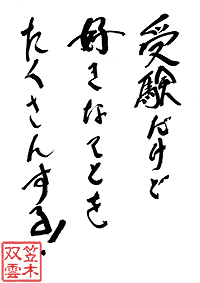 受験だけど
好きなことを
たくさんする!
笠木
双雲